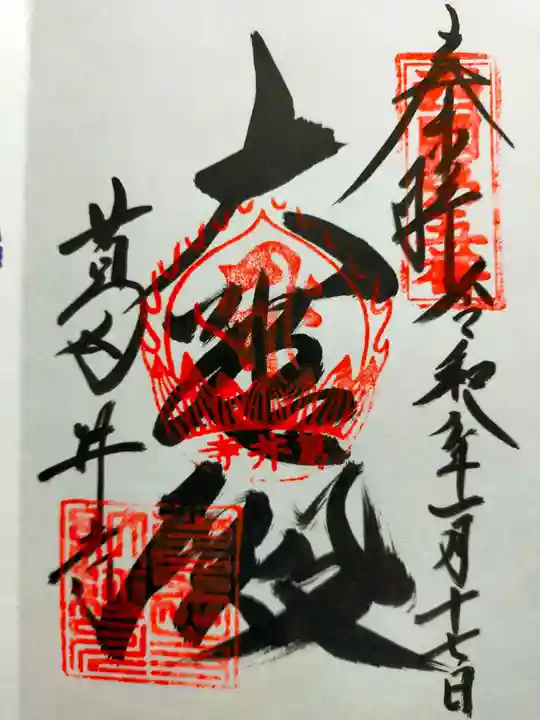 奉拝
令和八年一月十七日
大悲殿
葛井寺
葛井寺